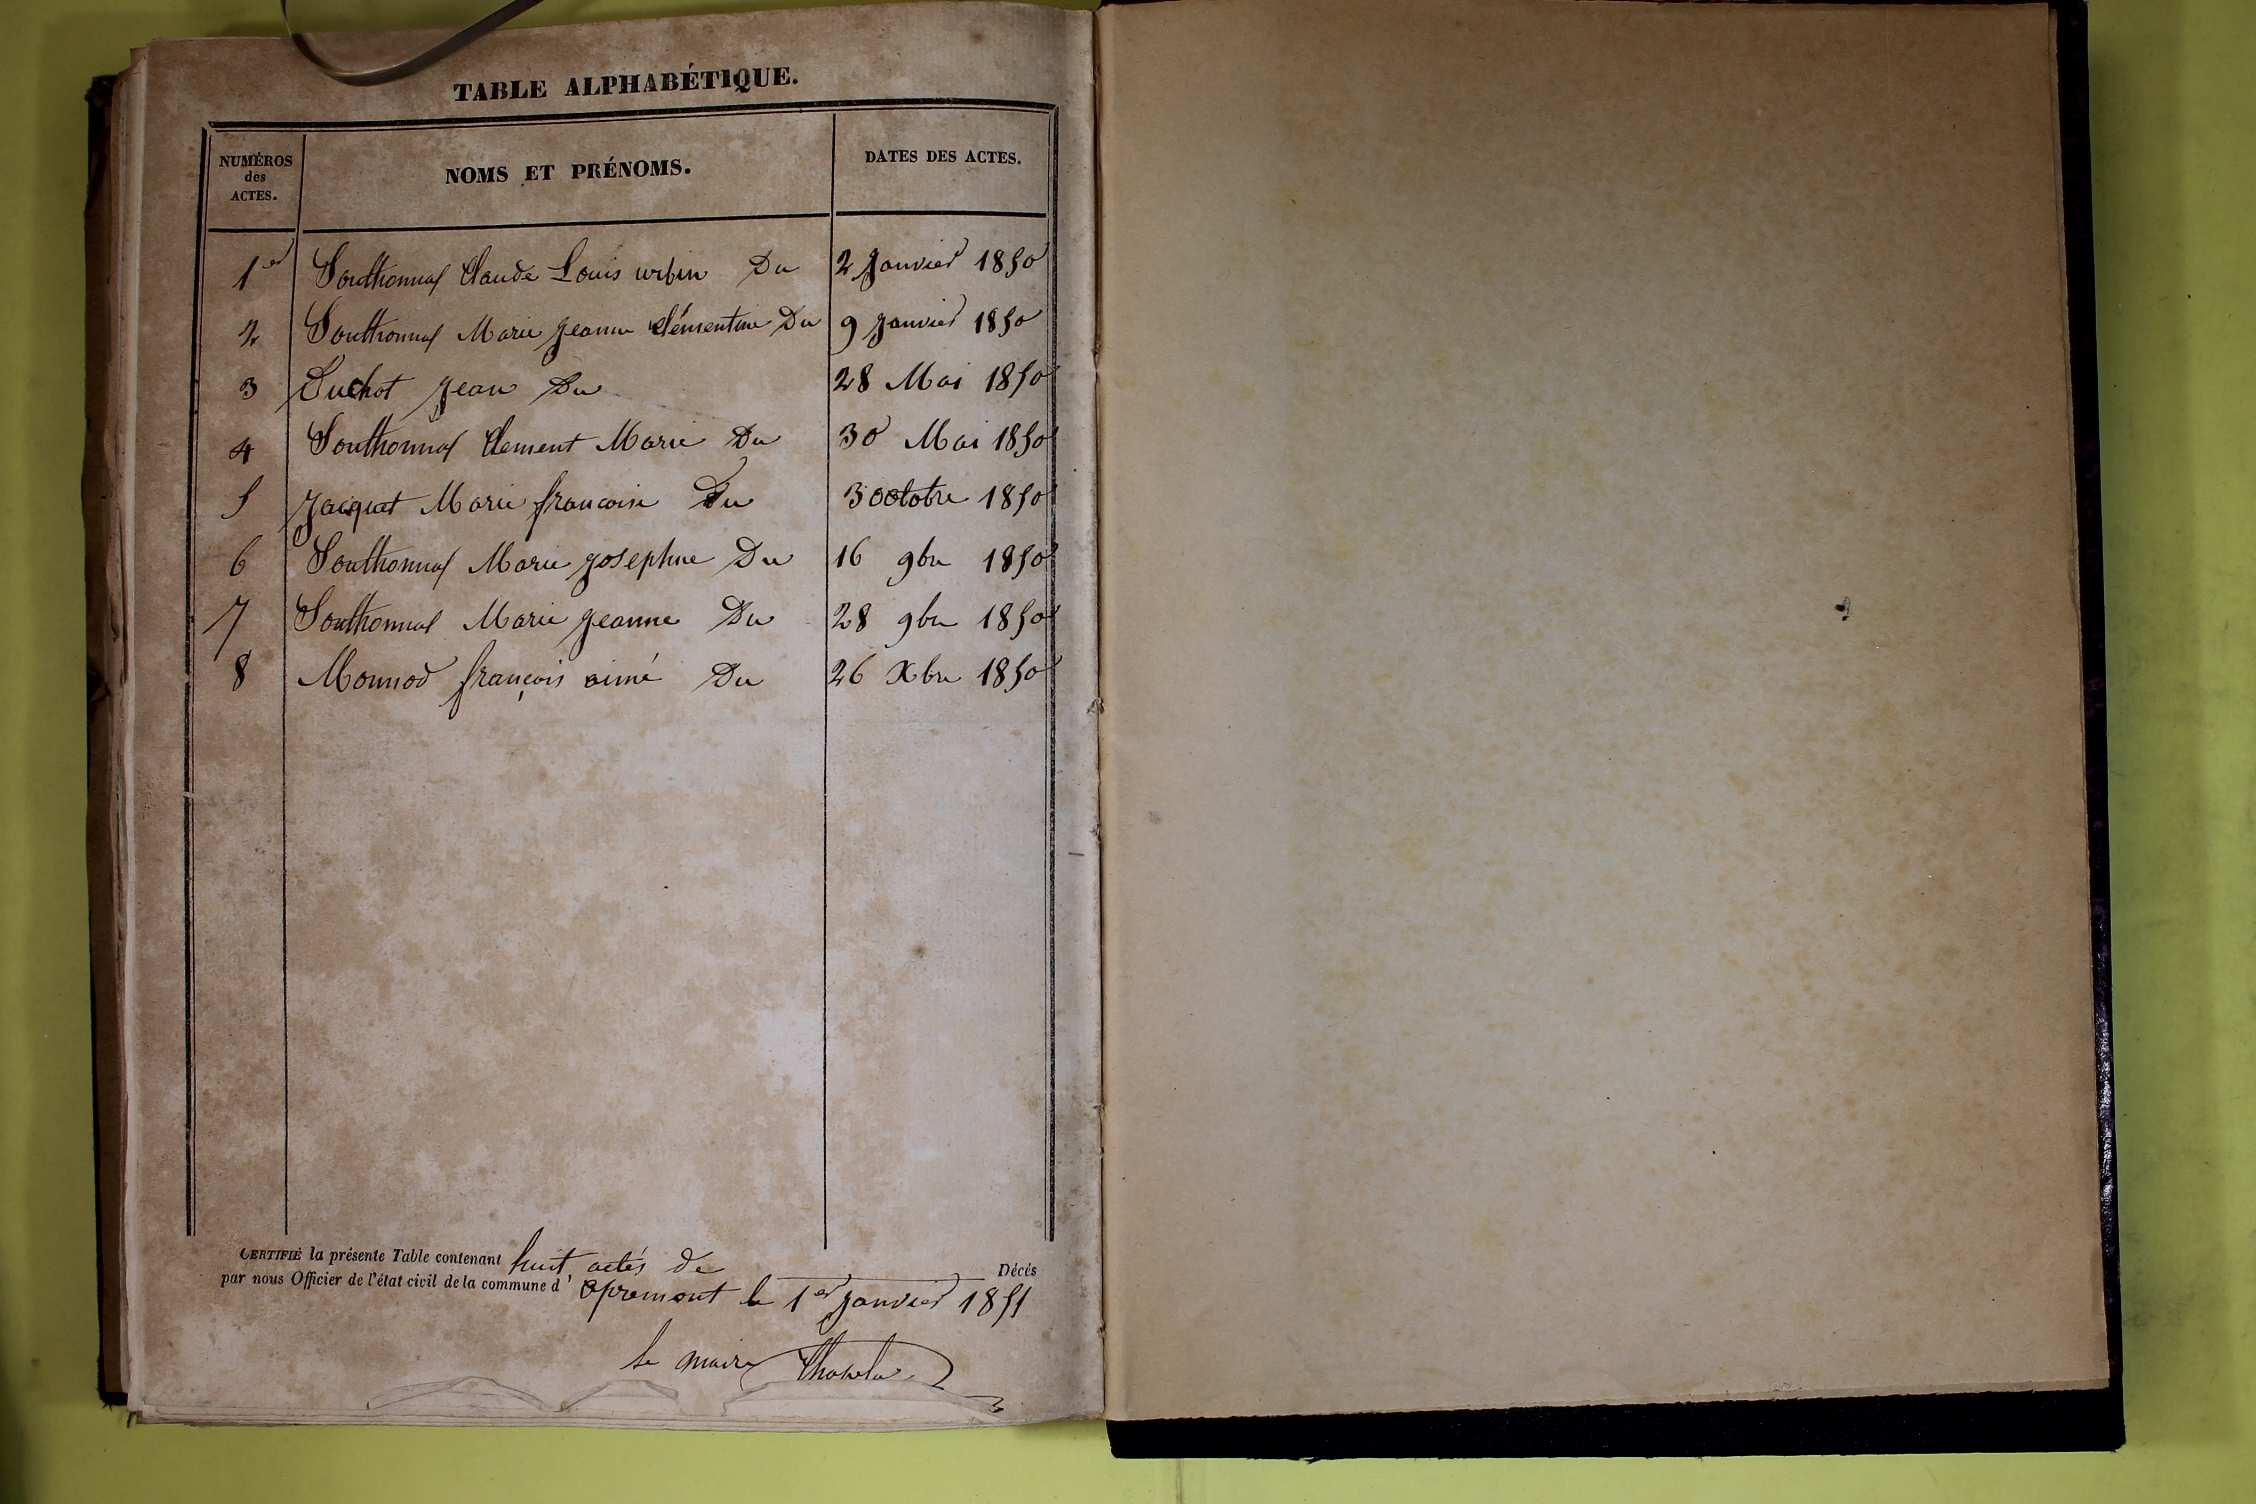 TABLE ALPHABÉTIQUE.
NUMÉROS des ACTES. NOMS ET PRÉNOMS. DATES DES ACTES.
1er Southonnax Claude Louis urbin Du 2 Janvier 1850
2 Southonnax Marie Jeanne Clémentine Du 9 Janvier 1850
3 Suchot Jean Du 28 Mai 1850
4 Southonnax Clement Marie Du 30 Mai 1850
5 Jacquet Marie francoise Du 3 octobre 1850
6 Southonnax Marie Josephine Du 16 9bre 1850
7 Southonnax Marie Jeanne Du 28 9bre 1850
8 Monnod françois aimé Du 26 Xbre 1850
CERTIFIÉ la présente Table contenant huit actés de Décès
par nous Officier de l'état civil de la commune d' apremont le 1er Janvier 1851
le maire